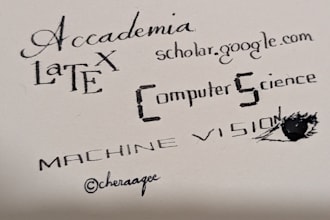 Accademia
scholar.google.com
LaTEX
Computer Science
MACHINE VISION
©cheraagee